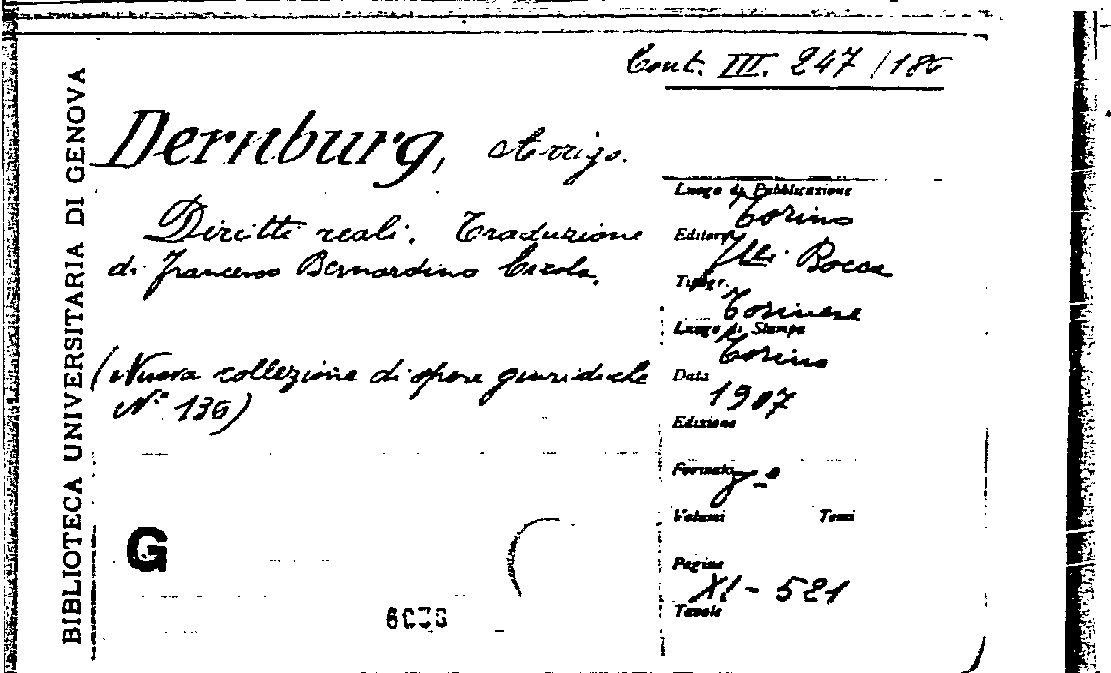 BIBLIOTECA UNIVERSITARIA DI GENOVA
Cont. III. 247 /186
Dernburg, Arrigo.
Diritti reali. Traduzione
di Francesco Bernardino Cicala.
(Nuova collezione di opere giuridiche
N° 136)
G
Luogo di Pubblicazione
Torino
Editore
F.lli Bocca
Tipogr.
Torinese
Luogo di Stampa
Torino
Data
1907
Edizione
Formato
8°
Volumi Tomi
Pagine
XI - 521
Tavole